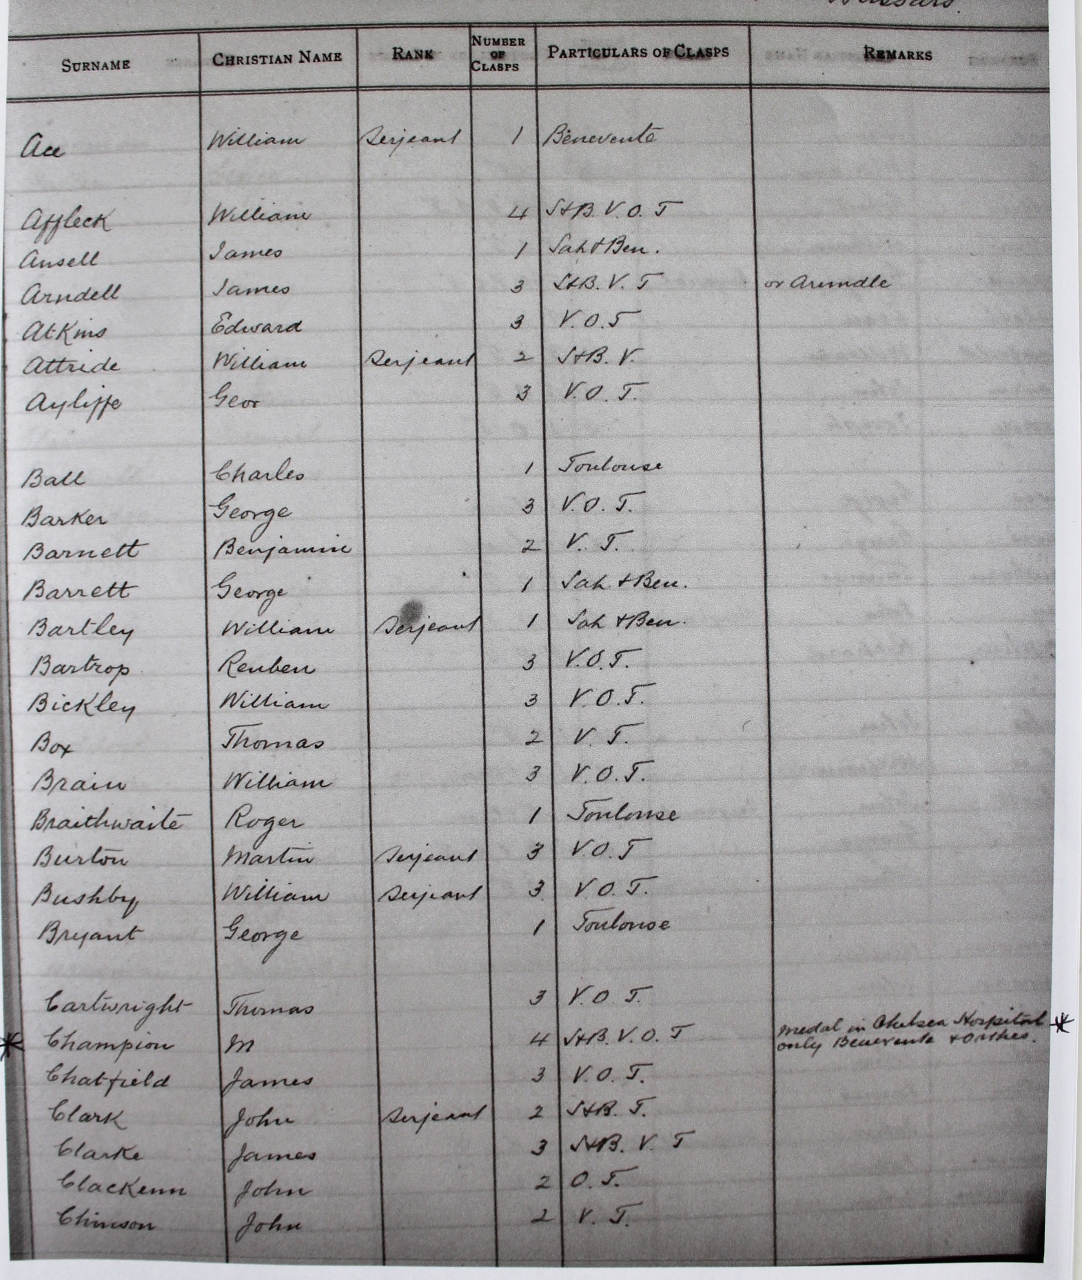 Hussars.
SURNAME CHRISTIAN NAME RANK NUMBER OF CLASPS PARTICULARS OF CLASPS REMARKS
Ace William Serjeant 1 Benevente
Affleck William 4 S+B. V. O. T
Ansell James 1 Sah + Ben.
Arndell James 3 S+B. V. T or Arundle
Atkins Edward 3 V.O.T
Attride William Serjeant 2 S+B. V.
Ayliffe Geor 3 V.O.T.
Ball Charles 1 Toulouse
Barker George 3 V.O.T.
Barnett Benjamin 2 V. T.
Barrett George 1 Sah + Ben.
Bartley William Serjeant 1 Sah + Ben.
Bartrop Reuben 3 V.O.T.
Bickley William 3 V.O.T.
Box Thomas 2 V. T.
Brain William 3 V.O.T.
Braithwaite Roger 1 Toulouse
Burton Martin Serjeant 3 V.O.T
Bushby William Serjeant 3 V.O.T.
Bryant George 1 Toulouse
Cartwright Thomas 3 V.O.T.
* Champion M 4 S+B. V. O. T medal in Chelsea Hospital *
only Benevente + Orthes.
Chatfield James 3 V.O.T.
Clark John Serjeant 2 S+B. T.
Clarke James 3 S+B. V. T
Clackenn John 2 O. T.
John 2 V. T.